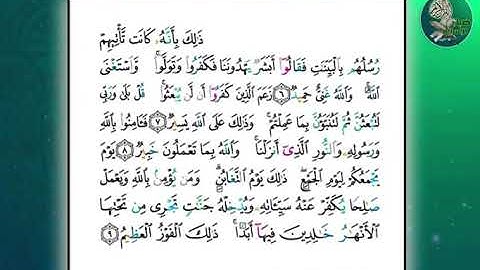 ذَٰلِكَ بِأَنَّهُۥ كَانَت تَّأْتِيهِمْ
رُسُلُهُم بِٱلْبَيِّنَٰتِ فَقَالُوٓا۟ أَبَشَرٌ يَهْدُونَنَا فَكَفَرُوا۟ وَتَوَلَّوا۟ ۚ وَّٱسْتَغْنَى
ٱللَّهُ ۚ وَٱللَّهُ غَنِىٌّ حَمِيدٌ ٦ زَعَمَ ٱلَّذِينَ كَفَرُوٓا۟ أَن لَّن يُبْعَثُوا۟ ۚ قُلْ بَلَىٰ وَرَبِّى
لَتُبْعَثُنَّ ثُمَّ لَتُنَبَّؤُنَّ بِمَا عَمِلْتُمْ ۚ وَذَٰلِكَ عَلَى ٱللَّهِ يَسِيرٌ ٧ فَـَٔامِنُوا۟ بِٱللَّهِ
وَرَسُولِهِۦ وَٱلنُّورِ ٱلَّذِىٓ أَنزَلْنَا ۚ وَٱللَّهُ بِمَا تَعْمَلُونَ خَبِيرٌ ٨ يَوْمَ
يَجْمَعُكُمْ لِيَوْمِ ٱلْجَمْعِ ۖ ذَٰلِكَ يَوْمُ ٱلتَّغَابُنِ ۗ وَمَن يُؤْمِنۢ بِٱللَّهِ وَيَعْمَلْ
صَٰلِحًا يُكَفِّرْ عَنْهُ سَيِّـَٔاتِهِۦ وَيُدْخِلْهُ جَنَّٰتٍ تَجْرِى مِن تَحْتِهَا
ٱلْأَنْهَٰرُ خَٰلِدِينَ فِيهَآ أَبَدًا ۚ ذَٰلِكَ ٱلْفَوْزُ ٱلْعَظِيمُ ٩